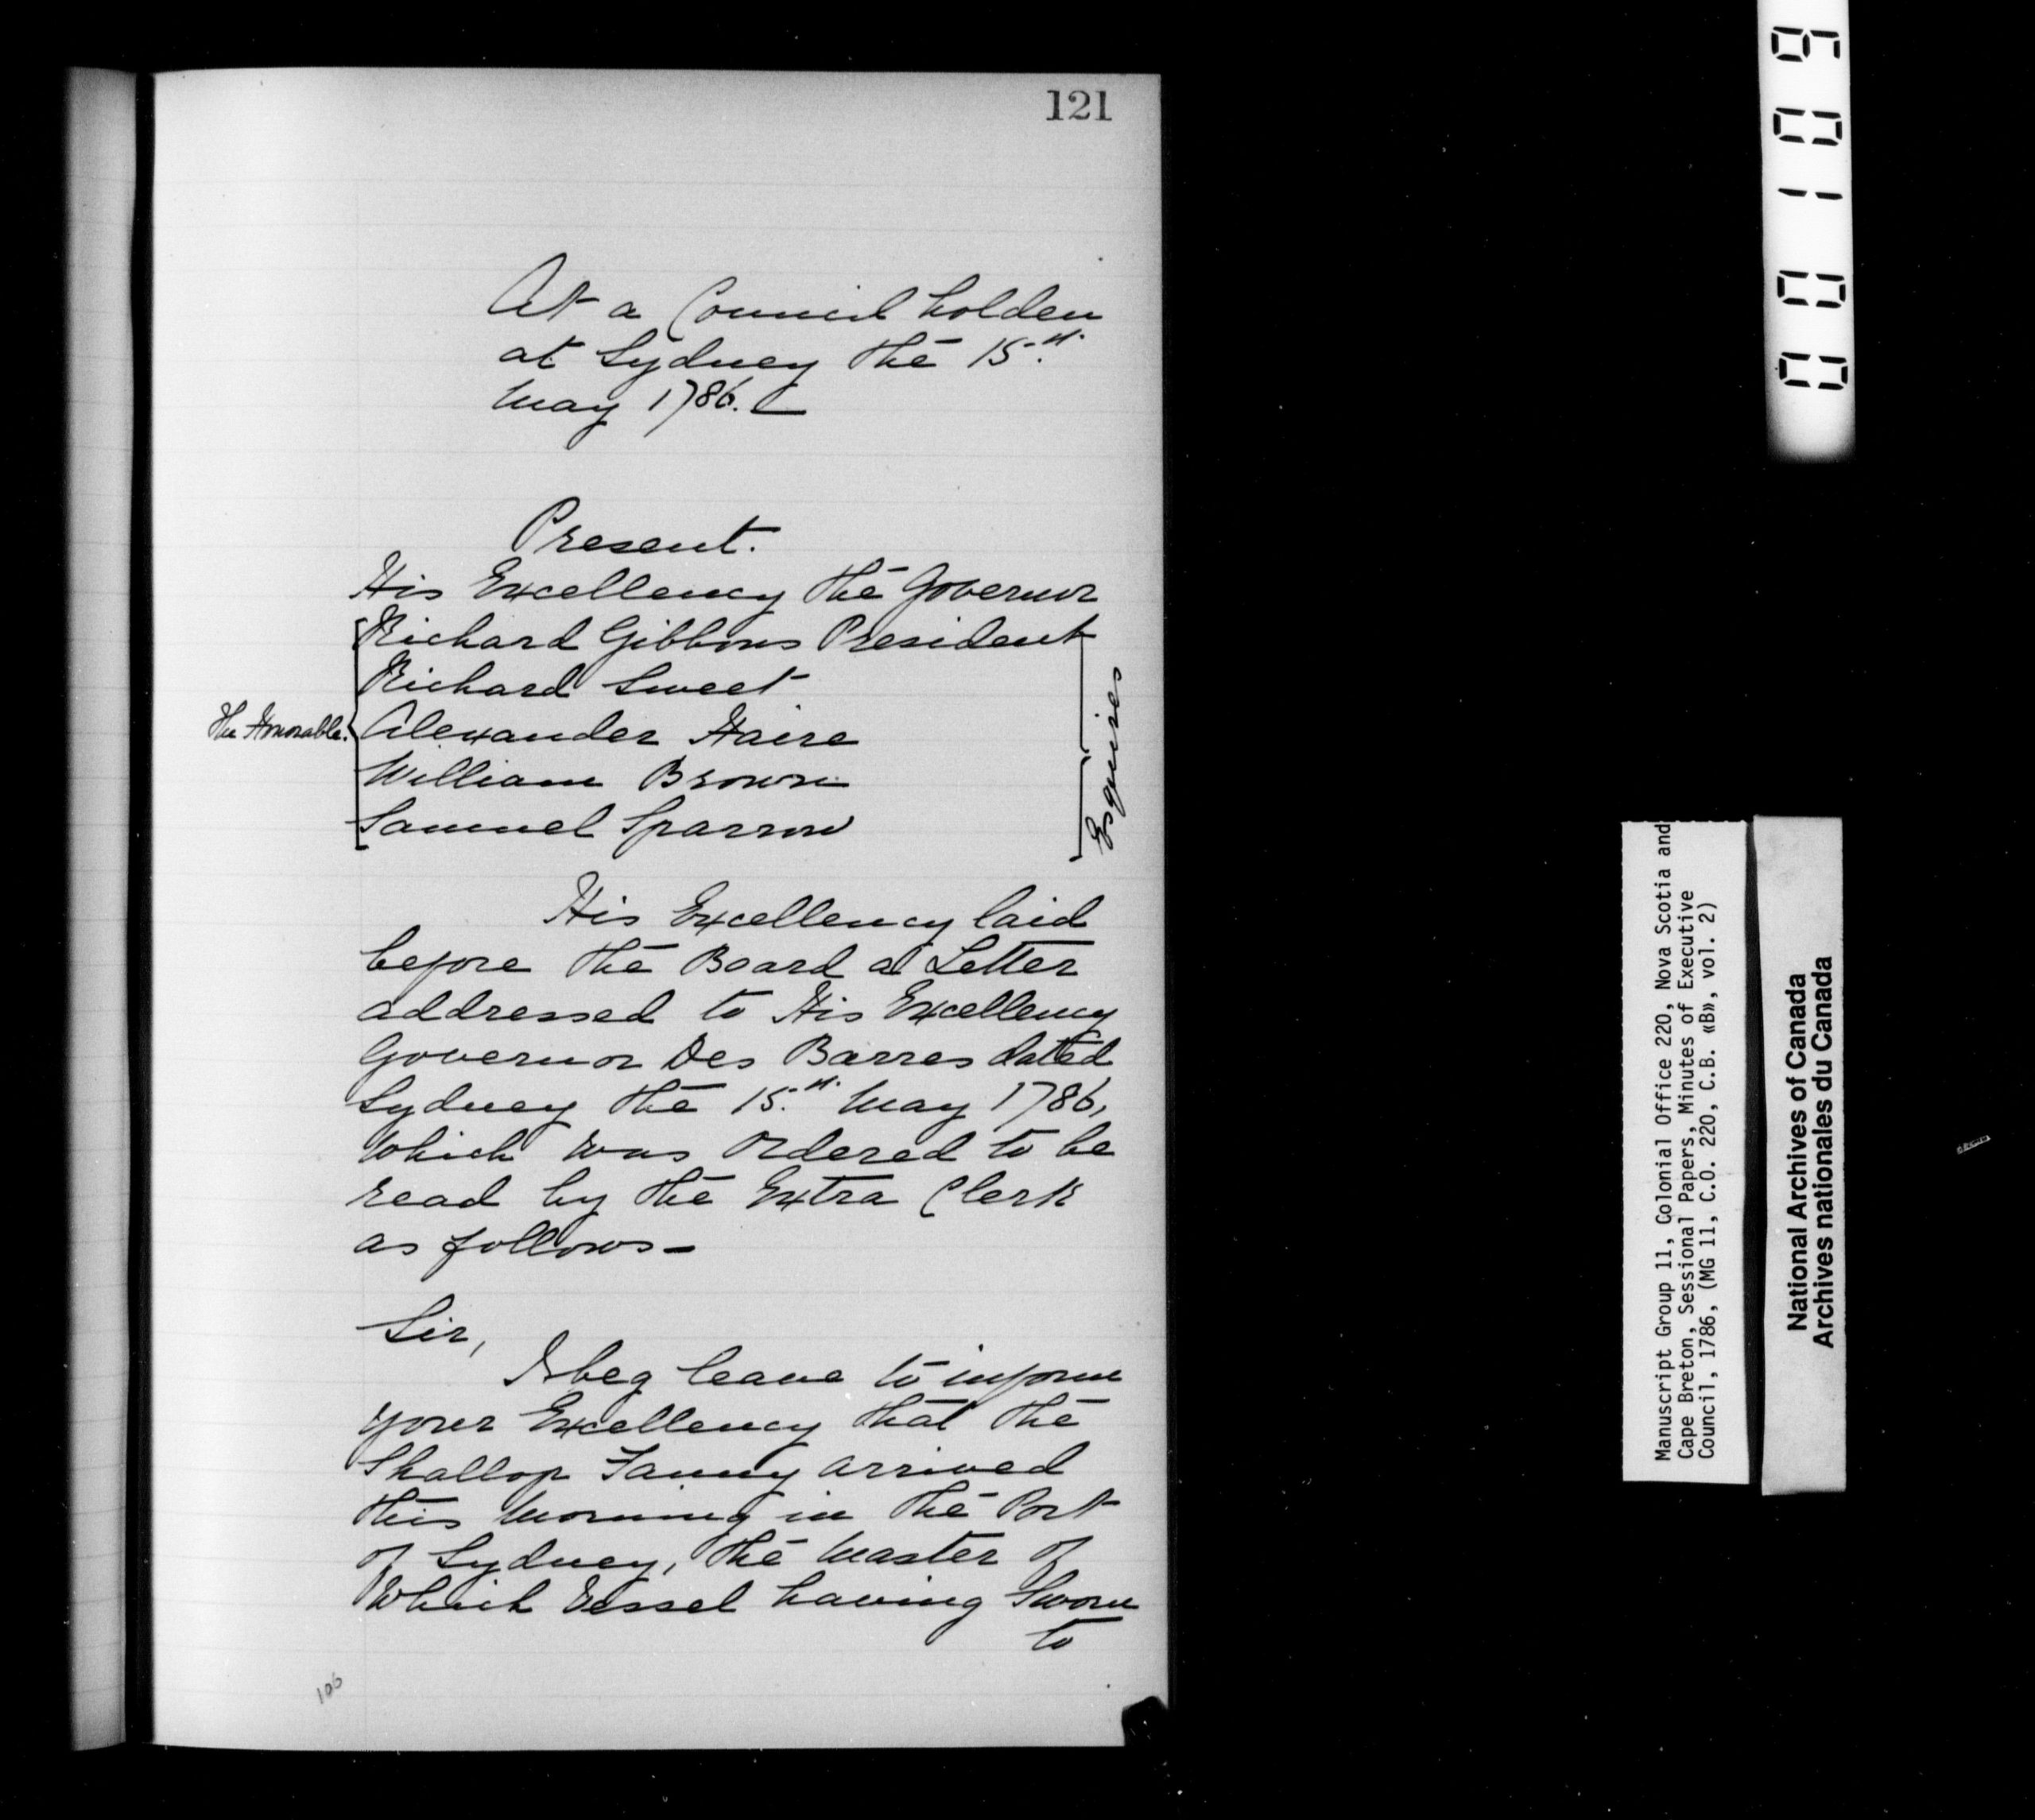 121
At a Council holden
at Sydney the 15.th
May 1786.—
Present.
His Excellency the Governor
Richard Gibbons President
Richard Sweet
The Honorable. Alexander Haire
William Brown
Samuel Sparrow
Esquires
His Excellency laid
before the Board a Letter
addressed to His Excellency
Governor Des Barres dated
Sydney the 15.th May 1786,
which was Ordered to be
read by the Extra Clerk
as follows—
Sir,
I beg leave to inform
your Excellency that the
Shallop Fanny arrived
this Morning in the Port
of Sydney, the Master of
Which Vessel having Sworn
to
106
Manuscript Group 11, Colonial Office 220, Nova Scotia and
Cape Breton, Sessional Papers, Minutes of Executive
Council, 1786, (MG 11, C.O. 220, C.B. «B», vol. 2)
National Archives of Canada
Archives nationales du Canada